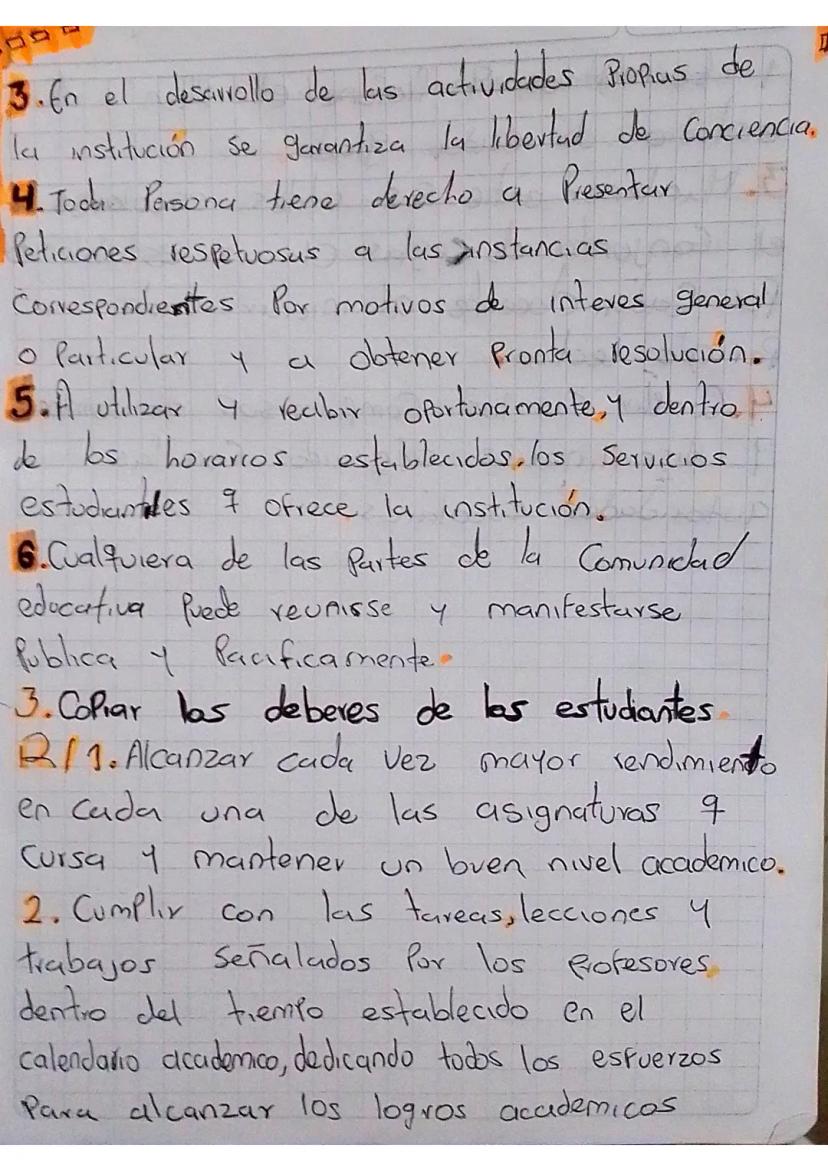 3. En el desarrollo de las actividades Propias de
la institución se garantiza la libertad de Conciencia.
4. Toda Persona tiene derecho a Presentar
Peticiones respetuosas a las instancias
Correspondientes Por motivos de interes general
o Particular y a obtener Pronta resolución.
5. A utilizar y recibir oportunamente, y dentro
de los horarios establecidos, los Servicios
estudiantiles q ofrece la institución.
6. Cualquiera de las Partes de la Comunidad
educativa Puede reunisse y manifestarse
Publica y Pacificamente.
3. Copiar los deberes de los estudiantes.
R/ 1. Alcanzar cada vez mayor rendimiento
en cada una de las asignaturas q
Cursa y mantener un buen nivel academico.
2. Cumplir con las tareas, lecciones y
trabajos señalados Por los Profesores,
dentro del tiempo establecido en el
calendario academico, dedicando todos los esfuerzos
Para alcanzar los logros academicos